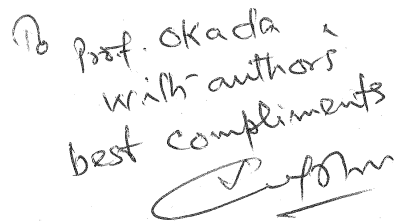 To Prof. Okada
with author's
best compliments